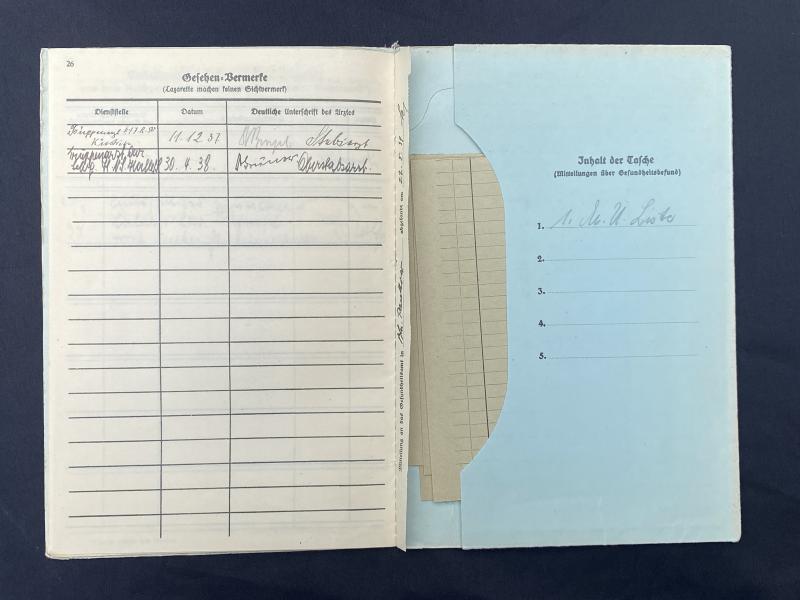 26
Gesehen-Vermerke
(Lazarette machen keinen Sichtvermerk)
Dienststelle Datum Deutliche Unterschrift des Arztes
11. 12. 37. Stabsarzt
30. 4. 38. Oberstabsarzt.
Mitteilung an das Gesundheitsamt in
abgesandt am
Inhalt der Tasche
(Mitteilungen über Gesundheitsbefund)
1. 1. M. U. Liste
2.
3.
4.
5.